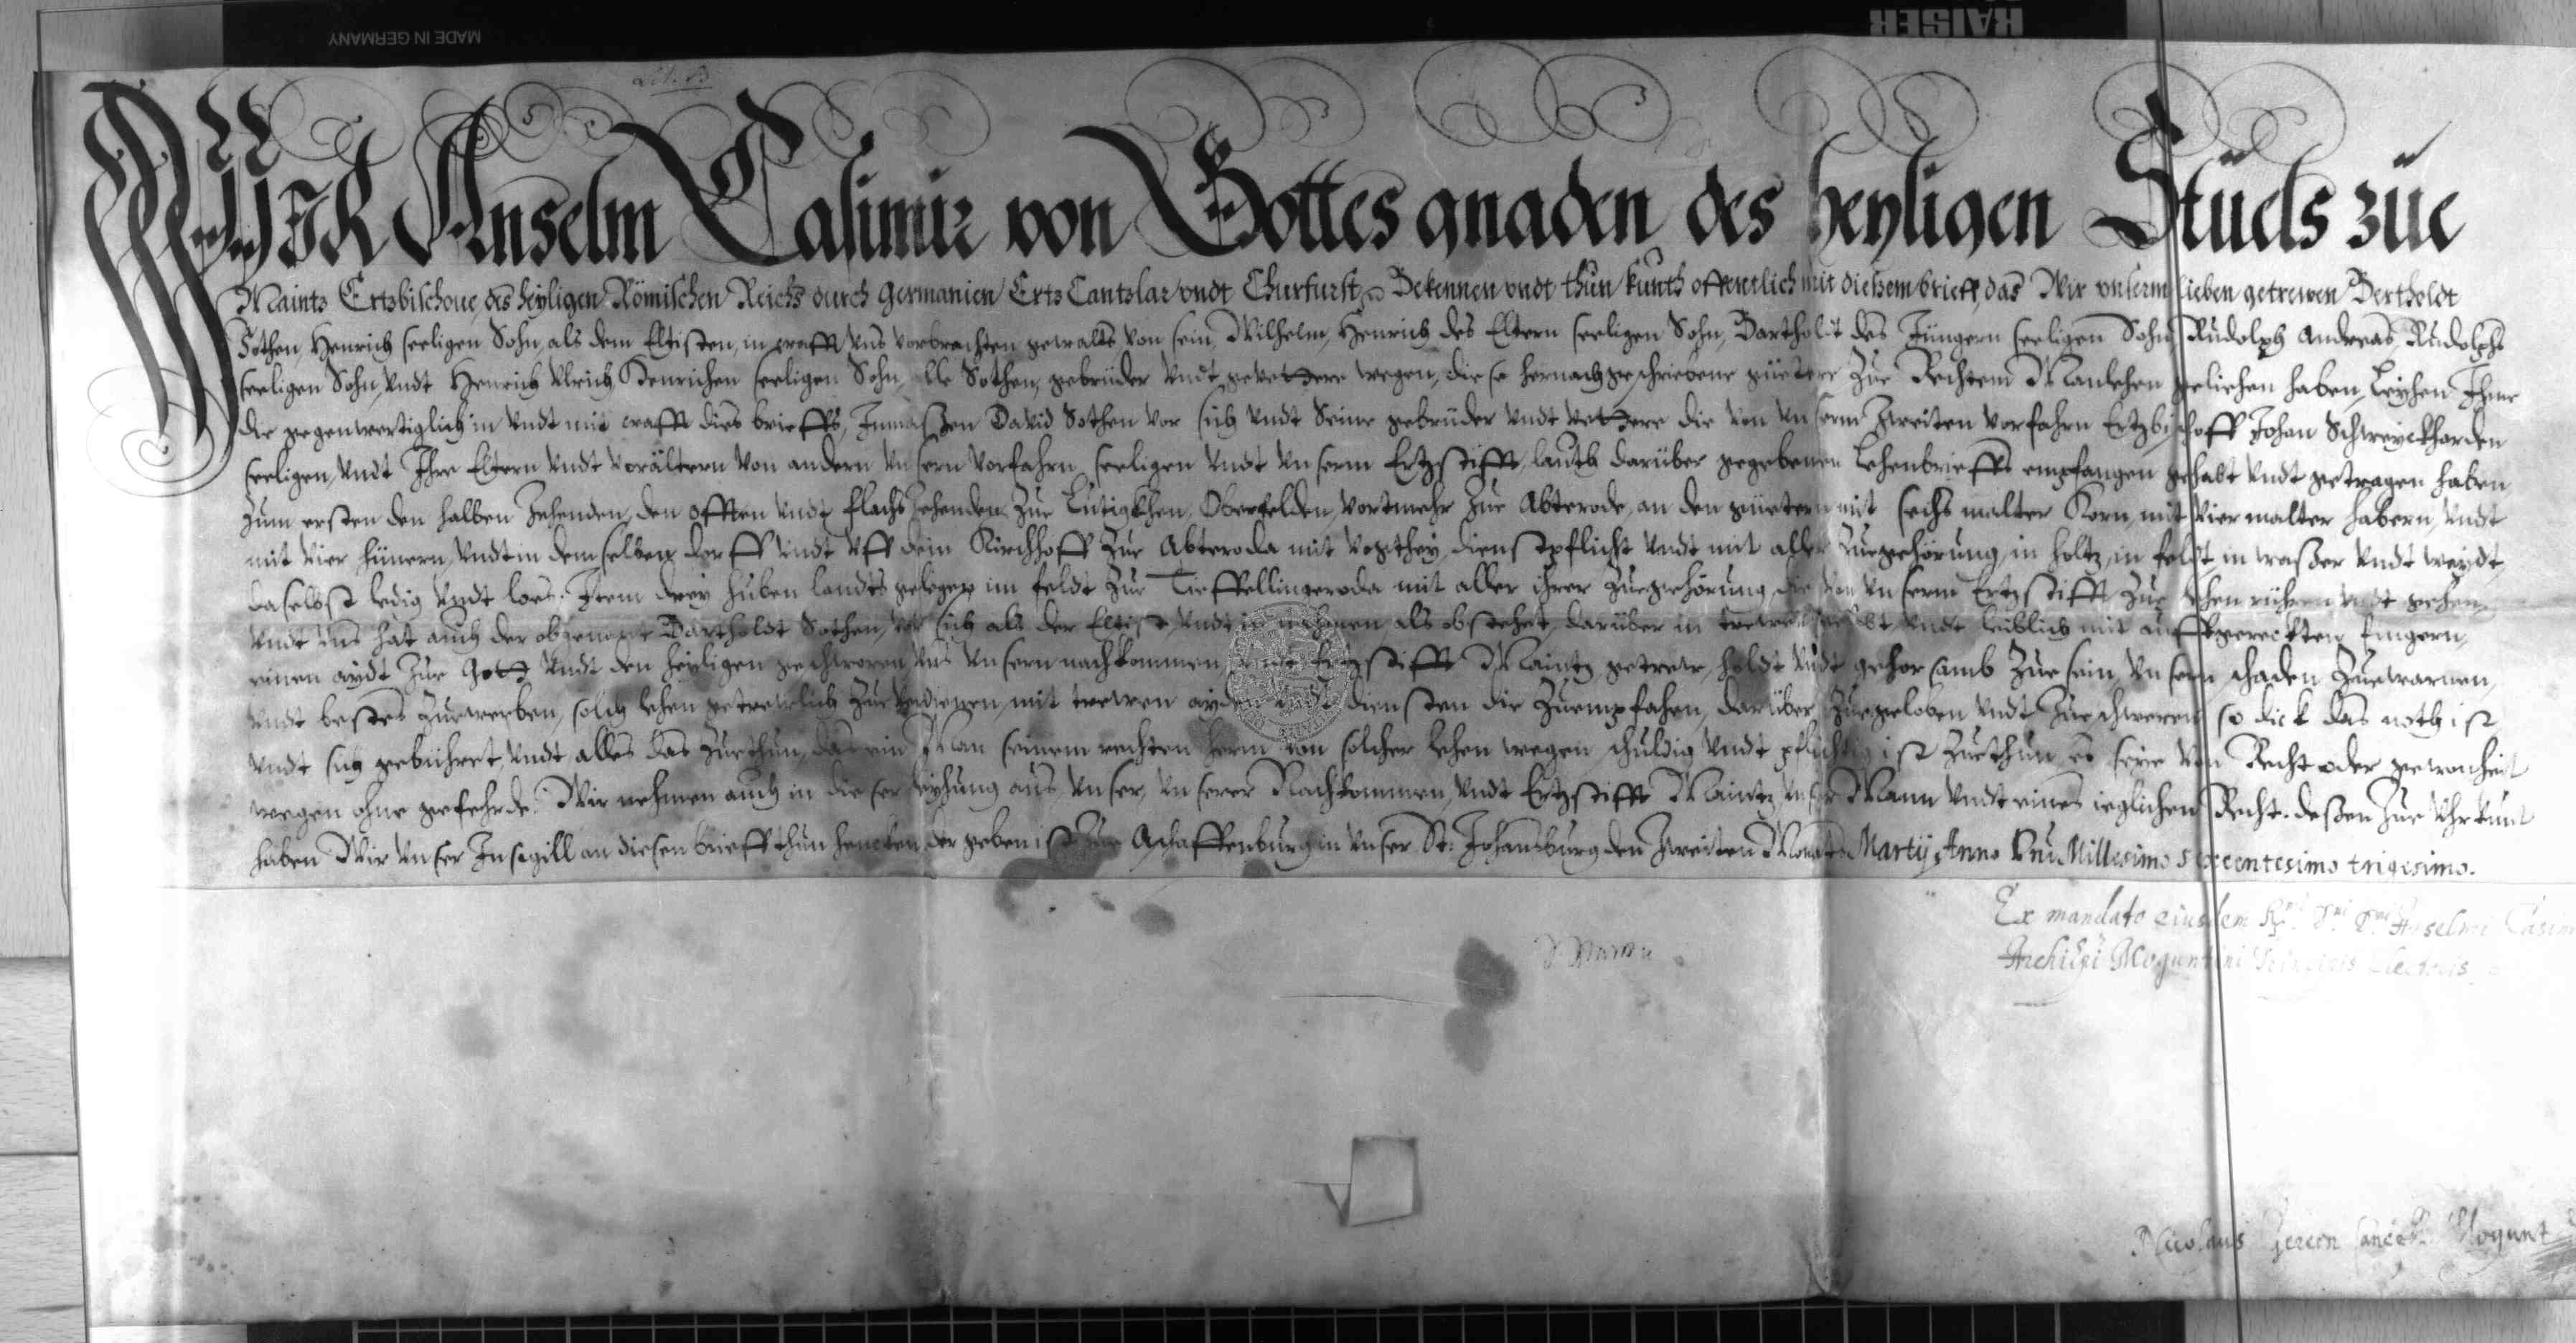 MADE IN GERMANY
KAISER
Lit. B
WIR Anselm Casimir von Gottes gnaden des heyligen Stuels zue
Maintz Ertzbischoue, des heyligen Römischen Reichs durch Germanien Ertz Cantzlar vndt Churfurst Bekennen vndt thun kunth offentlich mit dießem brieff, das Wir vnserm lieben getrewen Bertholdt
Sothen, Henrich seeligen Sohn, als dem Eltisten, in crafft vns vorbrachten gewalts, von sein, Wilhelm, Henrich des Eltern seeligen Sohn, Bartholdt des Jüngern seeligen Sohn, Rudolph Andreas, Rudolphs
seeligen Sohn, vndt Henrich Vlrich Henrichen seeligen Sohn, alle Sothen, gebrüder vndt gevettere wegen, diese hernachgeschriebene güetere zue Rechtem Manlehen geliehen haben, Leyhen Ihme
die gegenwertiglich in vndt mit crafft dies brieffs, Inmaßen David Sothen vor sich vndt Seine gebrüder vndt vettere die von vnserm Zweiten vorfahrn Ertzbischoff Johan Schweyckharden
seeligen, vndt Ihre Eltern vndt vorältern von andern vnsern vorfahrn seeligen vndt vnserm Ertzstifft, lauth darüber gegebenen Lehenbrieffs empfangen gehabt vndt getragen haben,
Zum ersten den halben Zehenden, den offten vndt flachs Zehenden zue Lutigkhen Oberfelden, vortmehr zue Abterode, an den güetern mit sechs malter Korn, mit vier malter habern, vndt
mit vier hünern, vndt in demselben dorff vndt vff dem Kirchhoff zue Abteroda mit vogthey, dienstpflicht vndt mit aller zuegehörung, in holtz, in feldt in waßer vndt weydt,
daselbst ledig vndt loes. Item drey huben landts gelegen im feldt zue Tieffellingeroda mit aller ihrer zuegehörung die von vnserm Ertzstifft zue lehen rühren vndt gehen,
vndt vns hat auch der obgenant Bartholdt Sothen, vor sich als der Eltist, vndt in nahmen, als obstehet, darüber in trewen gelobt vndt leiblich mit auffgereckten fingern,
einen aydt zue Gott vndt den heyligen geschworen vns vnsern nachkommen vndt Ertzstifft Maintz getrew, holdt vndt gehorsamb zue sein, vnsern schaden zuewarnen,
vndt bestes zuewerben, solch lehen getrewlich zueverdienen, mit trewen ayden vndt diensten die zuempfahen, darüber zuegeloben vndt zueschweren so dick das noth ist
vndt sich gebühret, vndt alles das zuethun, das ein Man seinem rechten herrn von solcher lehen wegen schuldig vndt pflichtig ist zuethun, es seye von Recht oder gewonheit
wegen ohne gefehrde. Wir nehmen auch in dieser leyhung aus vnser, vnserer Nachkommen, vndt Ertzstifft Maintz vnser Mann vndt eines ieglichen Recht. deßen zue Vhrkunt
haben Wir vnser Insigill an diesen brieff thun hencken, der geben ist zue Aschaffenburg in vnser St: Johansburg den Zweiten Monats Martij, Anno Dni Millesimo sexcentesimo trigesimo.
Ex mandato eiusdem Rmi Dni Dni Anselmi Casim
Archiepi Moguntini Principis Electoris
Nicolaus Gereon Mogunt